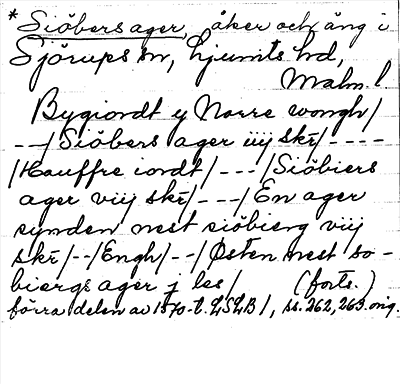 * Siöbers ager, åker och äng i
Sjörups sn, Ljunits hd,
Malm. l.
Bygiordt y Norre wongh/
--/Siöbers ager iiij skr/----
/Hauffre iordt/---/Siöbiers
ager viij skr/---/En ager
synden nest siöbierg viij
skr/--/Engh/--/Østen nest so-
biergs ager j les/ (forts.)
förra delen av 1570-t. LSLB 1, ss. 262, 263. orig.